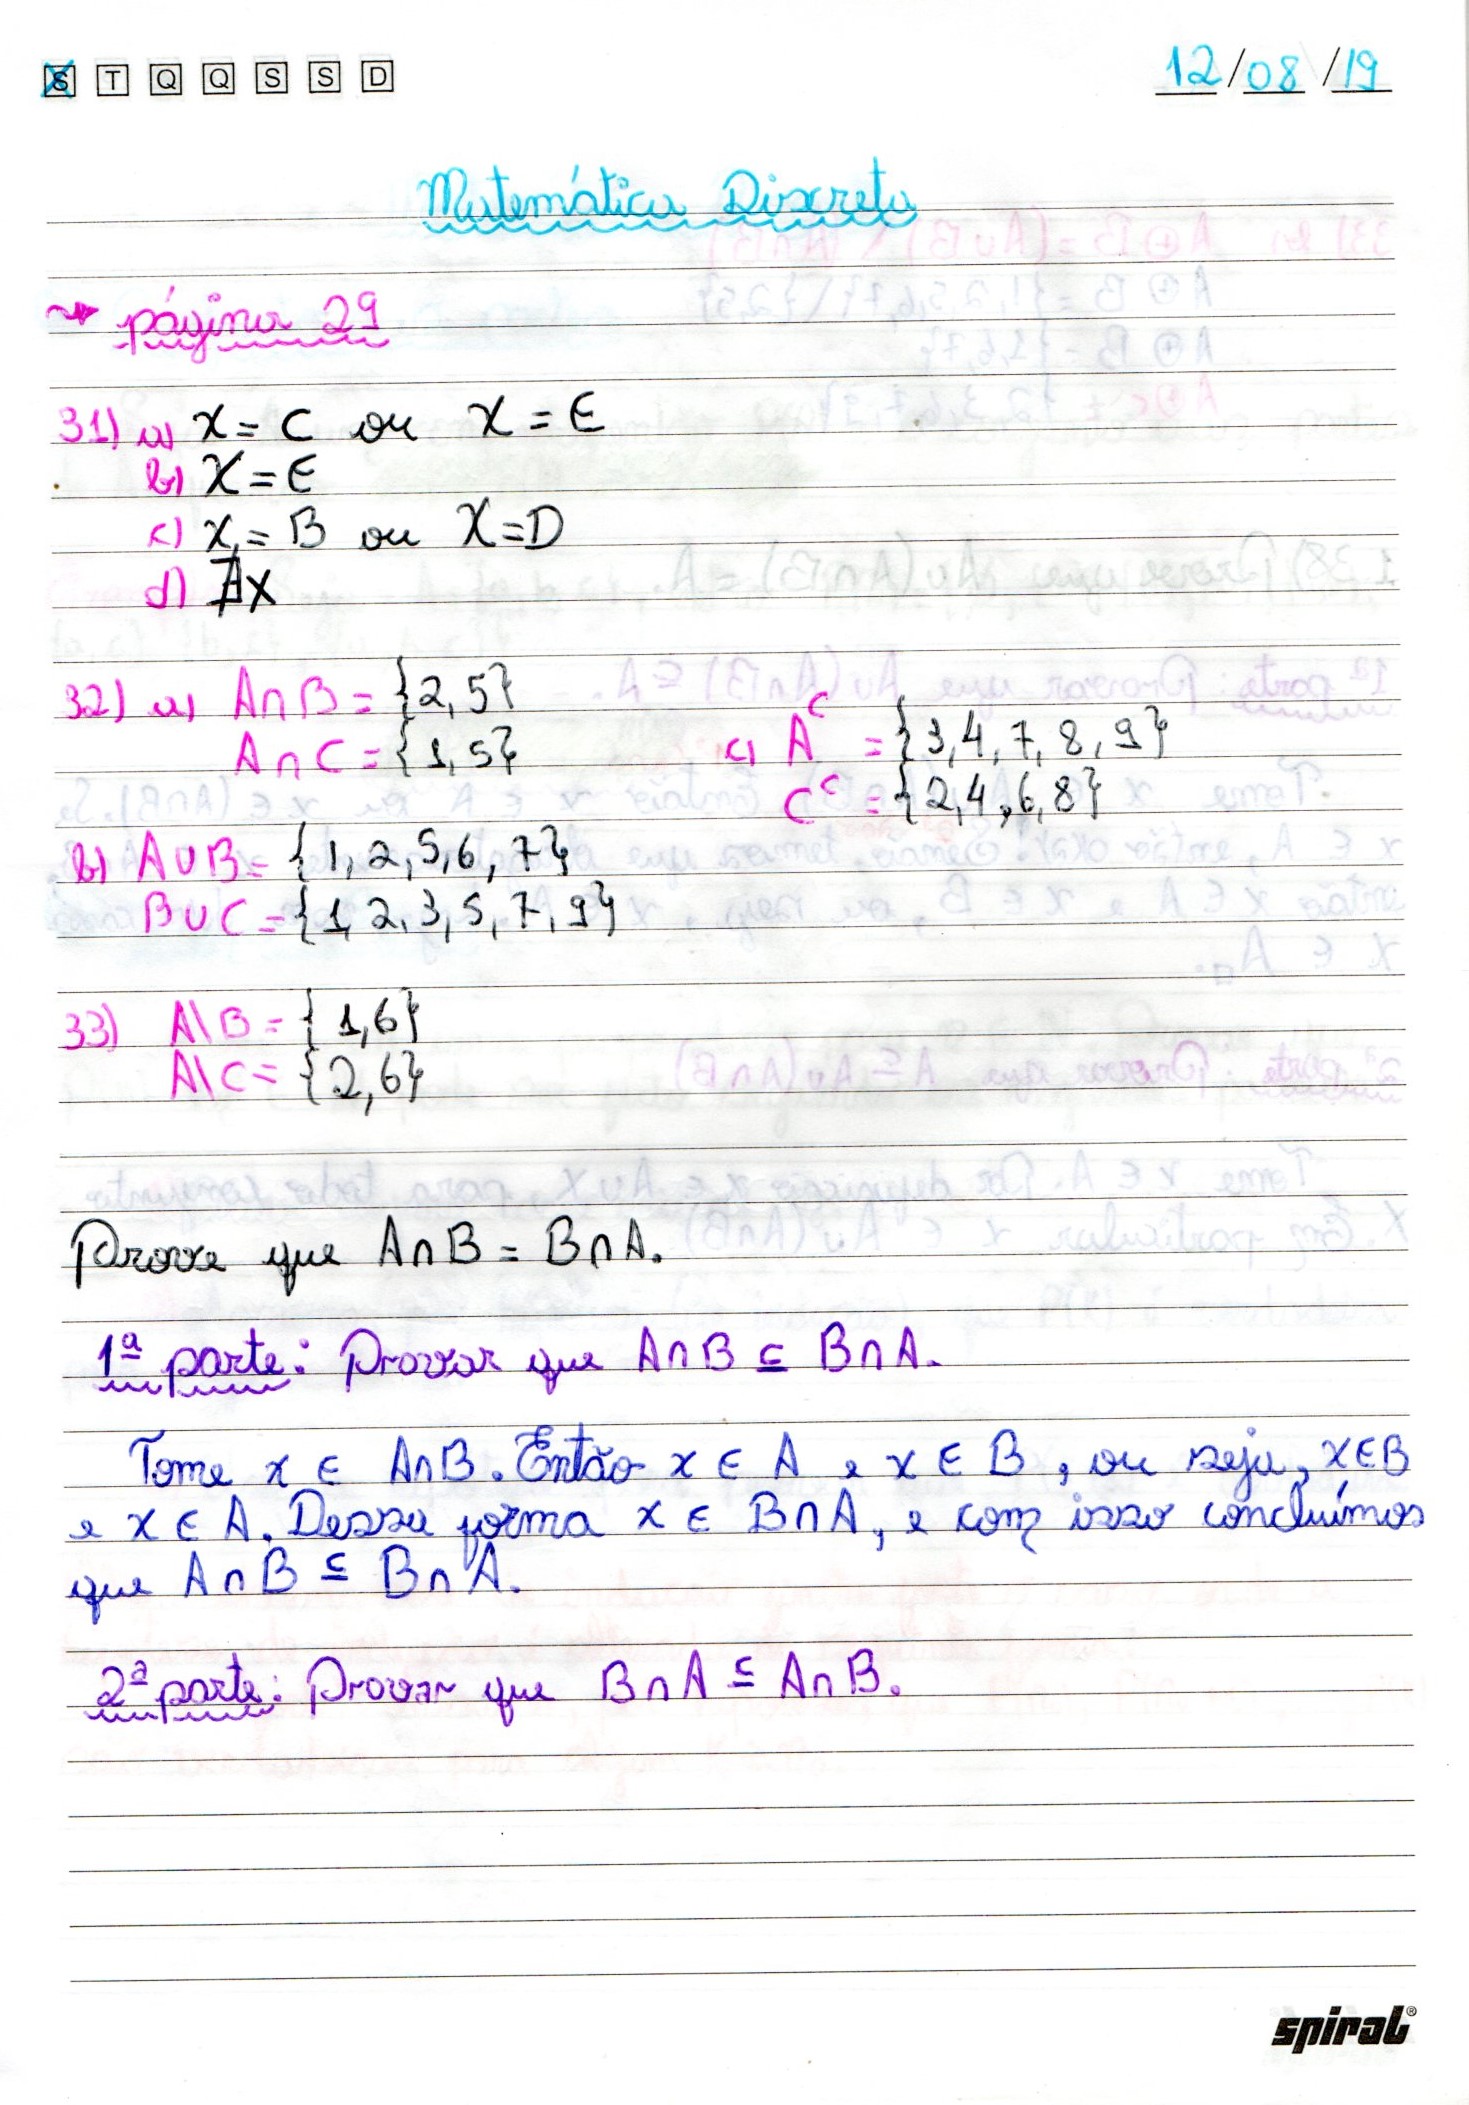 S T Q Q S S D 12/08/19
Matemática Discreta
→ página 29
31) a) X = C ou X = E
b) X = E
c) X = B ou X = D
d) ∄X
32) a) A∩B = {2, 5}
A∩C = {1, 5}
c) Aᶜ = {3, 4, 7, 8, 9}
Cᶜ = {2, 4, 6, 8}
b) A∪B = {1, 2, 5, 6, 7}
B∪C = {1, 2, 3, 5, 7, 9}
33) A\B = {1, 6}
A\C = {2, 6}
Prove que A∩B = B∩A.
1ª parte: Provar que A∩B ⊆ B∩A.
Tome x ∈ A∩B. Então x ∈ A e x ∈ B, ou seja, x ∈ B
e x ∈ A. Dessa forma x ∈ B∩A, e com isso concluímos
que A∩B ⊆ B∩A.
2ª parte: Provar que B∩A ⊆ A∩B.
spiral®